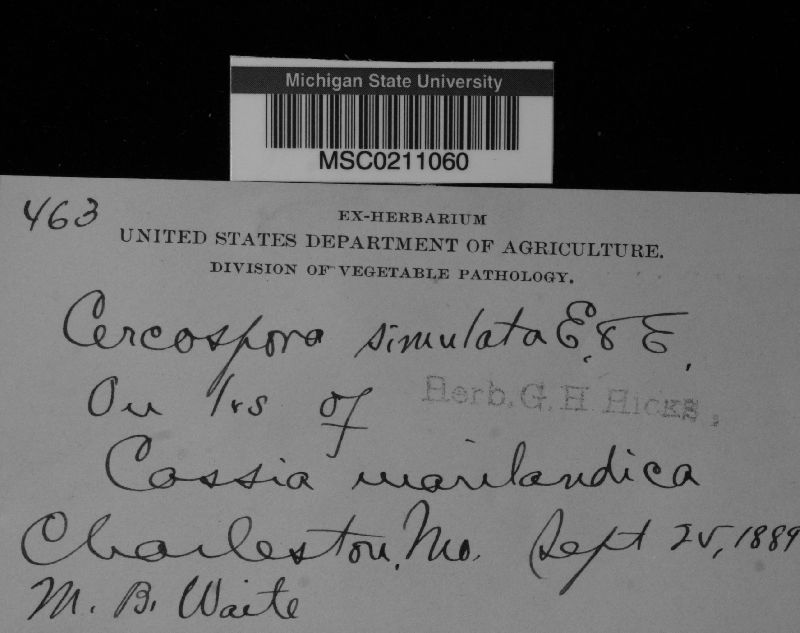 Michigan State University
MSC0211060
463
EX-HERBARIUM
UNITED STATES DEPARTMENT OF AGRICULTURE.
DIVISION OF VEGETABLE PATHOLOGY.
Cercospora simulata E. & E.
On lvs of
Herb. G. H Hicks.
Cassia marilandica
Charleston, Mo. Sept 25, 1889
M. B. Waite